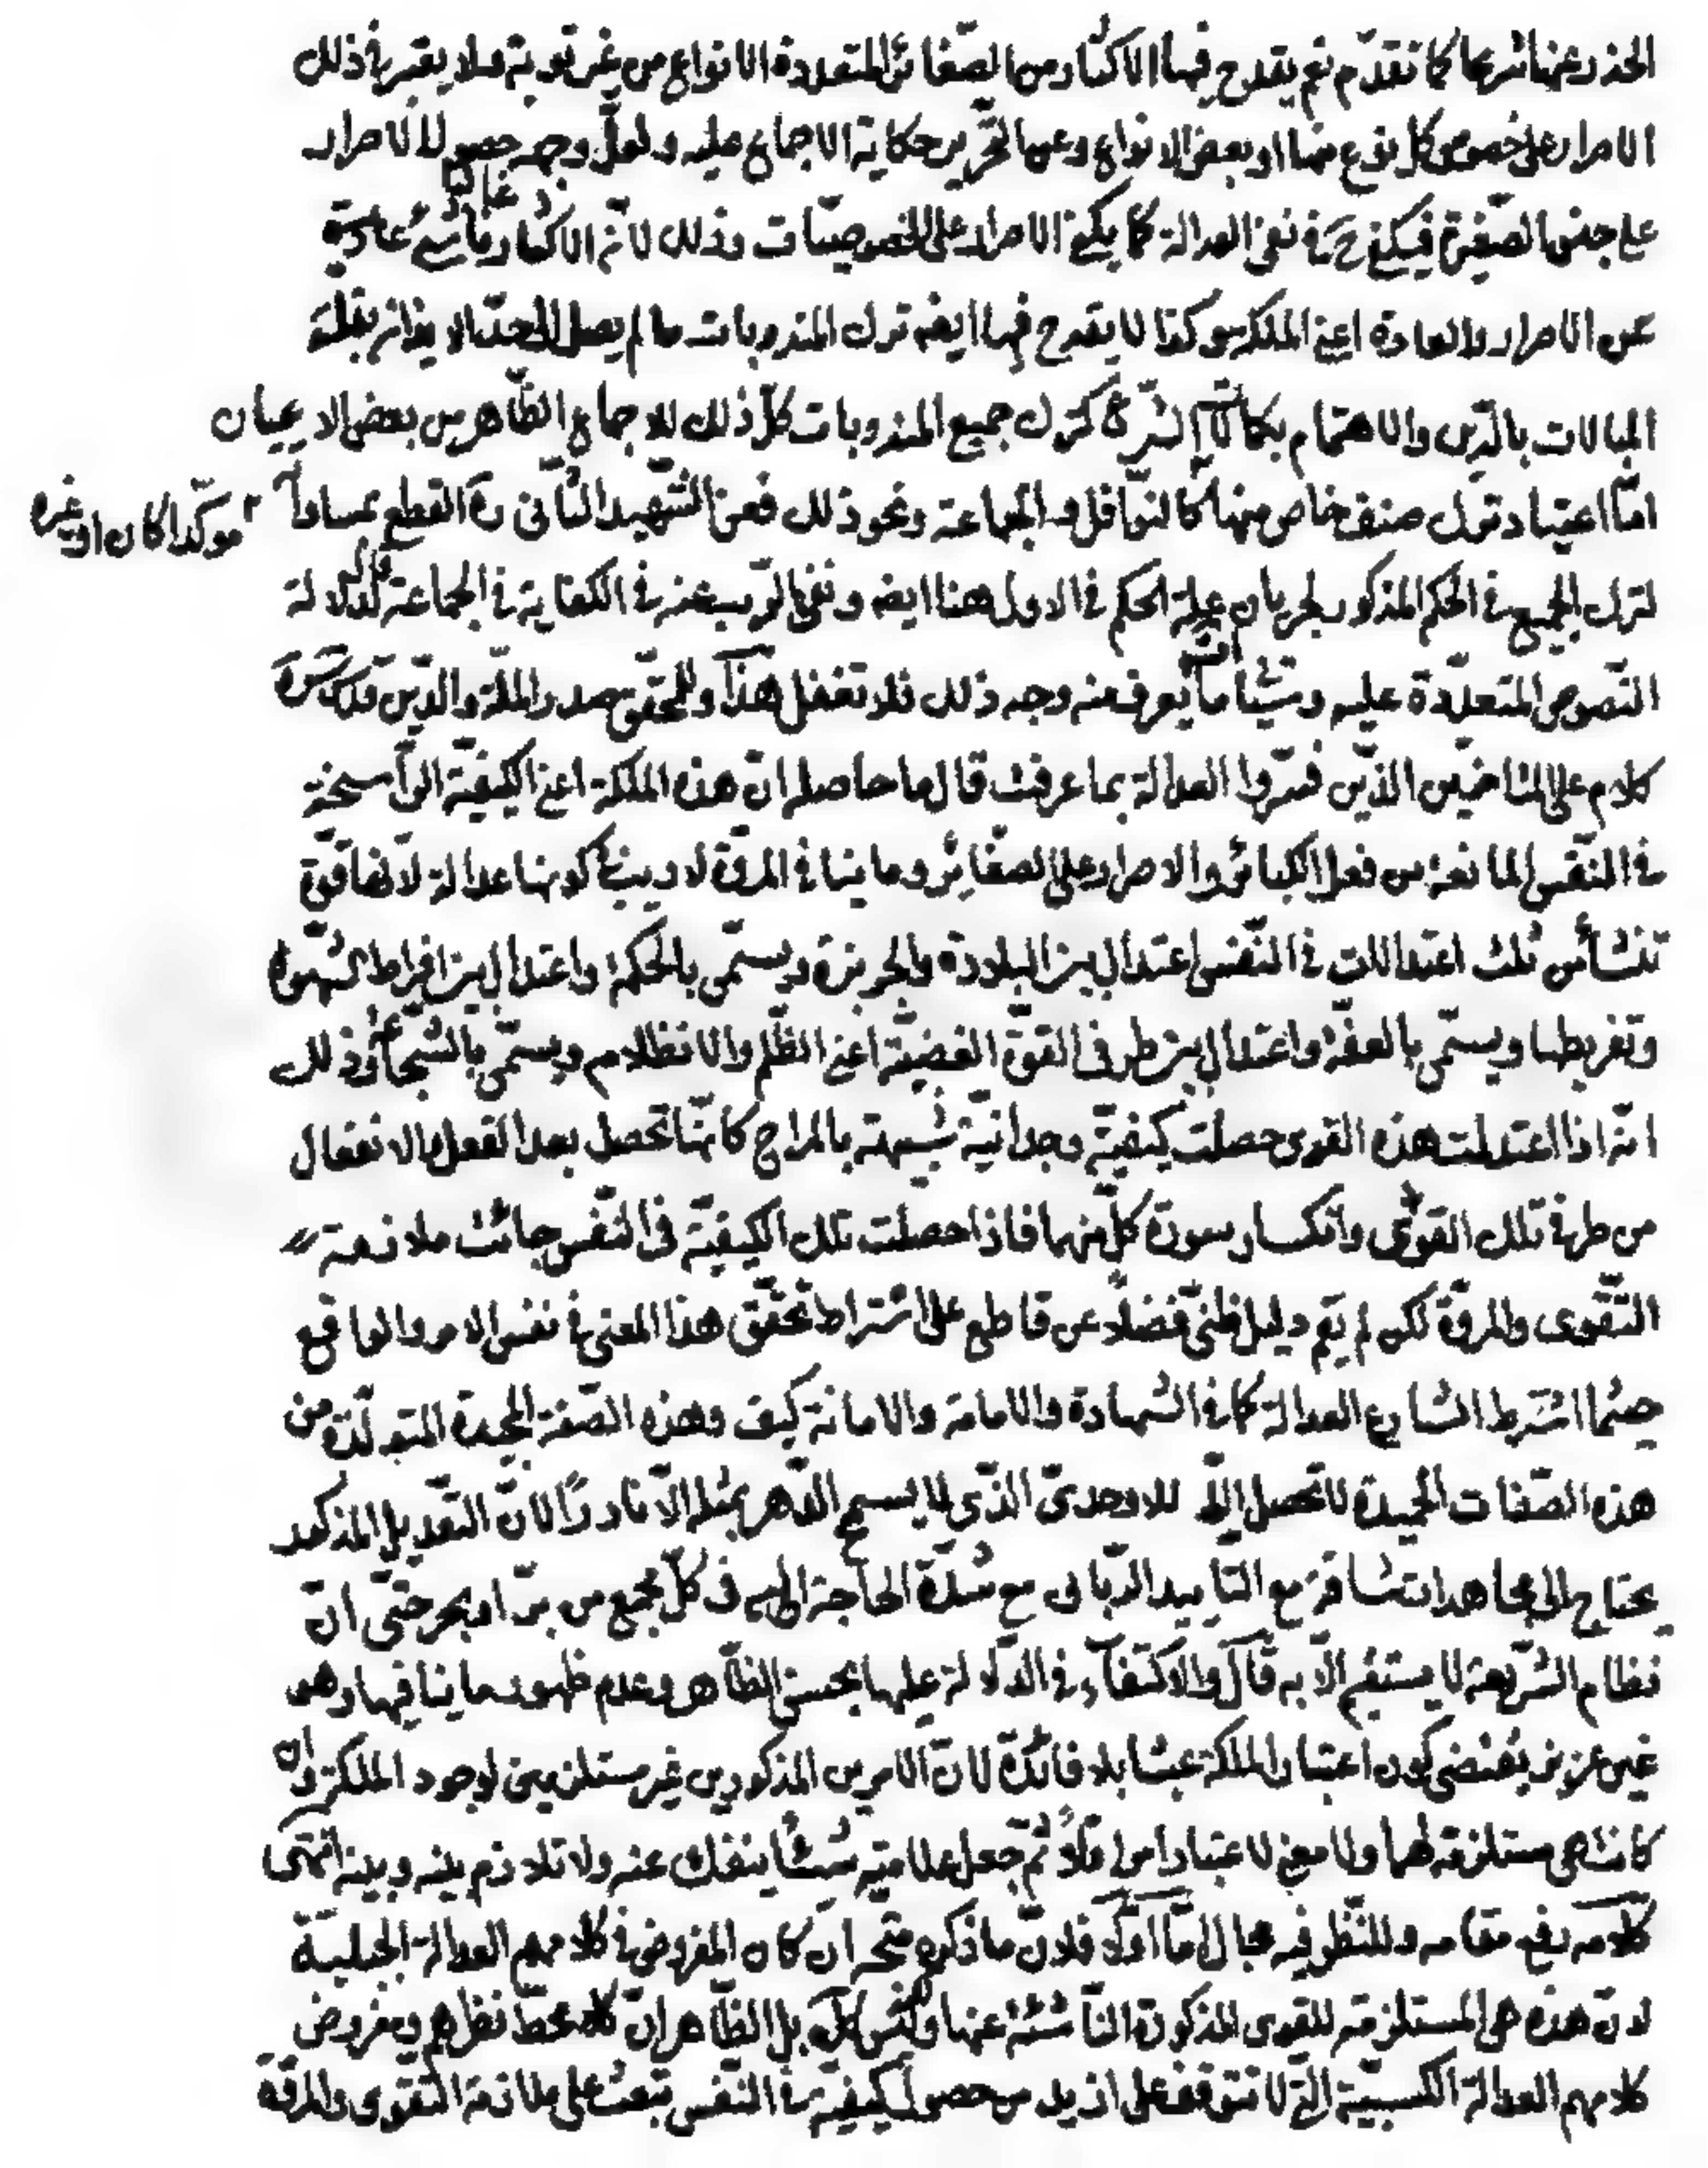 الحذر عنها شرعا كما تقدّم نعم يقدح فيها الاكثار من الصّغائر المتعددة الانواع من غير توبة فلا يعتبر في ذلك
الاصرار على خصوص كل نوع منها او بعض الانواع وعن التحرير حكاية الاجماع عليه ولعلّ وجهه حصول الاصرار
على جنس الصّغيرة فيكفي ح في نفى العدالة كما يكفي الاصرار على الخصوصيّات وذلك لانّ الاكثار غالبا عادة
عن الاصرار والعادة اعني الملكة وكذا لا يقدح فيها ايضه ترك المندوبات ما لم يصل الى حدّ الايذان بقلّة
المبالات بالدّين والاهتمام بكمالات الشرع كترك جميع المندوبات كلّ ذلك للاجماع الظّاهر من بعض الاعيان
امّا اعتياد ترك صنف خاص منها كالنّوافل والجماعة ونحو ذلك فعن الشّهيد الثّانى ره القطع بمساواته
مؤكّدا كان او غيره
لترك الجميع في الحكم المذكور لجريان علة الحكم في الاول هنا ايضه ونفى الرّيب عنه في الكفاية في الجماعة لدلالة
النّصوص المتعدّدة عليه وسيّاتى ما يعرف منه وجه ذلك فلا تغفل هذا وللمحقّق صدر الملّة والدّين قدّس سرّه
كلام على المتاخرين الذّين فسّروا العدالة بما عرفت قال ما حاصله انّ هذه الملكة اعنى الكيفيّة الرّاسخة
في النّفس المانعة من فعل الكبائر والاصرار على الصّغائر وما ينافي المروّة لا ريب في كونها عدالة لانّها قوّة
تنشأ من ثلث اعتدالات في النّفس اعتدال بين البلادة والجربزة ويسمّى بالحكمة واعتدال بين افراط الشهوة
وتفريطها ويسمّى بالعفّة واعتدال بين طرفى القوّة الغضبيّة اعنى الظّلم والانظلام ويسمّى بالشّجاعة وذلك
انّه اذا اعتدلت هذه القوى حصلت كيفيّة وحدانيّة شبيهة بالمزاج كانّها تحصل بعد الفعل والانفعال
من طرفي تلك القوى وانكسار سورة كلّ منها فاذا حصلت تلك الكيفيّة فى النّفس جائت ملازمة
التّقوى والمروّة لكن لم يقم دليل ظنّى فضلاً عن قاطع على اشتراط تحقّق هذا المعنى في نفس الامر والواقع
حيثما اشترط الشارع العدالة كما في الشهادة والامامة والامانة كيف وهذه الصّفة الحميدة المتولّدة من
هذه الصّفات الحميدة لا تحصل الّا للاوحدىّ الذّي لا يسمح الدّهر بمثله الّا نادرًا لانّ التّعديل المذكور
يحتاج الى مجاهدات شاقة مع التاييد الرّبانى مع شدّة الحاجة اليه فى كلّ مجمع من برّ او بحر حتّى انّ
نظام الشّريعة لا يستقيم الّا به قال والاكتفاء في الدّلالة عليها بحسن الظّاهر وعدم ظهور ما ينافيها وهى
غير عزيز يقتضى كون اعتبار الملكة عبثا بلا فائدة لانّ الامرين المذكورين غير مستلزمين لوجود الملكة وان
كانت هى مستلزمة لهما ولا معنى لاعتبار امر اوّلاً ثمّ جعل علامته شيئا ينفك عنه ولا تلازم بينه وبينه انتهى
كلامه رفع مقامه وللنّظر فيه مجال امّا اوّلا فلانّ ما ذكره متّجه ان كان المفروض في كلامهم العدالة الجبليّة
لانّ هذه هى المستلزمة للقوى المذكورة النّاشئة عنها وليس كك بل الظّاهر انّ محطّ نظرهم ومفروض
كلامهم العدالة الكسبيّة الّتى لا تتوقف على ازيد من حصول كيفيّة في النّفس تبعث على ملازمة التّقوى والمروّة